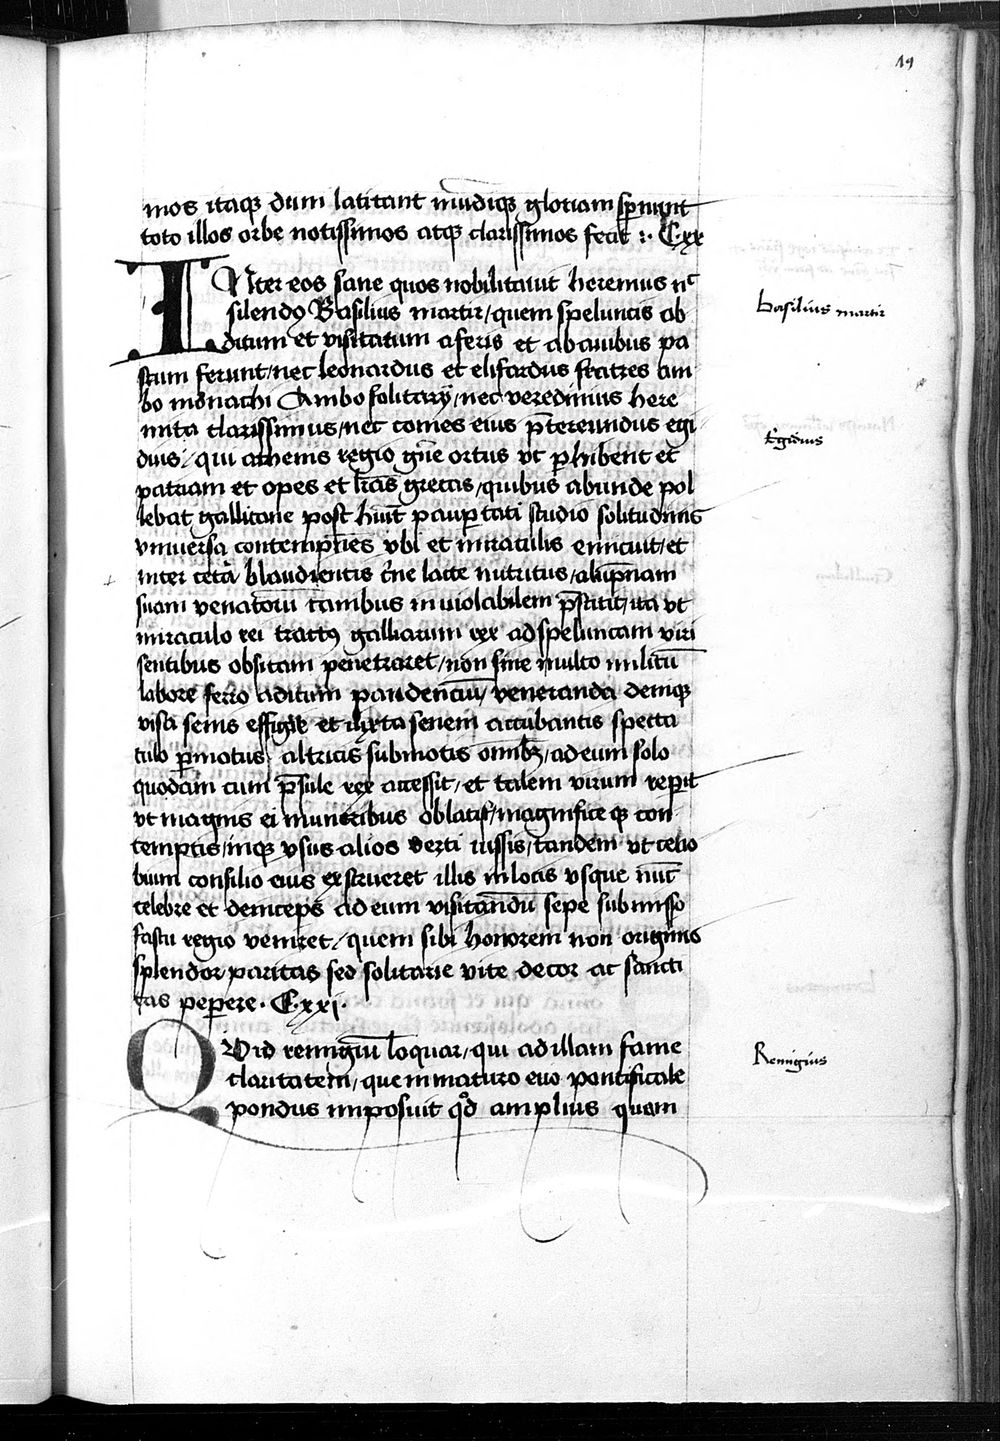 19
mos itaqꝫ dum latitant mūdiqꝫ gloriam sp̄nunt
toto illos orbe notissimos atqꝫ clarissimos fecit :. C.xx
INter eos sane quos nobilitauit heremus nc̄
silendꝯ Basilius martir / quem speluncis ab
ditum et visitatum a feris et ab auibus pa
stum ferunt / nec leonardus et elifardus fratres am
bo monachi Ambo solitarÿ / nec veredimius here
mita clarissimus / nec comes eius p̄tereundus egi
dius / qui athenis regio gn̄e ortus vt p̱hibent et
patriam et opes et lr̄as grecas / quibus abunde pol
lebat gallicane post hāc paup̱tati studio solitudinis
vniuersa contempn̄es vbi et miraculis enituit / et
inter cetā blaudientis c̄ne lacte nutritus / alūpnam
suam venatorū canibus inuiolabilem p̄stitit / ita vt
miraculo rei tractꝯ galliarum rex ad speluncam viri
sentibus obsitam penetraret / non sine multo militū
labore ferro aditum pandenciū / veneranda demqꝫ
visa senis effigie et iuxta senem accubantis specta
culo p̱motus altricis submotis omībꝫ / ad eum solo
quodam cum p̄sule rex accessit / et talem virum rep̱it
vt magnis ei muneribus oblatis / magnificeqꝫ con
temptis / inqꝫ vsus alios verti iussis / tandem vt ceno
bium consilio eius exstrueret illis in locis vsque nūc
celebre et deinceps ad eum visitandū sepe submisso
fastu regio veniret / quem sibi honorem non originis
splendor paritas sed solitarie vite decor ac sancti
tas pep̱ere . C.xxi .
QVid remigiū loquar / qui ad illam fame
claritatem / que inmaturo euo pontificale
pondus imposuit qͦd amplius quam
basilius martir
Egidius
Remigius